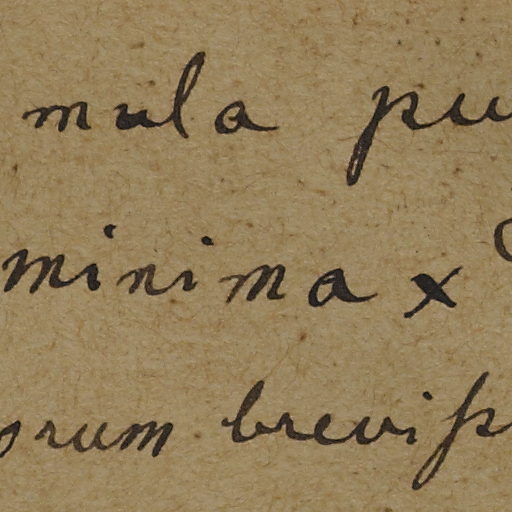 mula pu
minima x
orum brevip